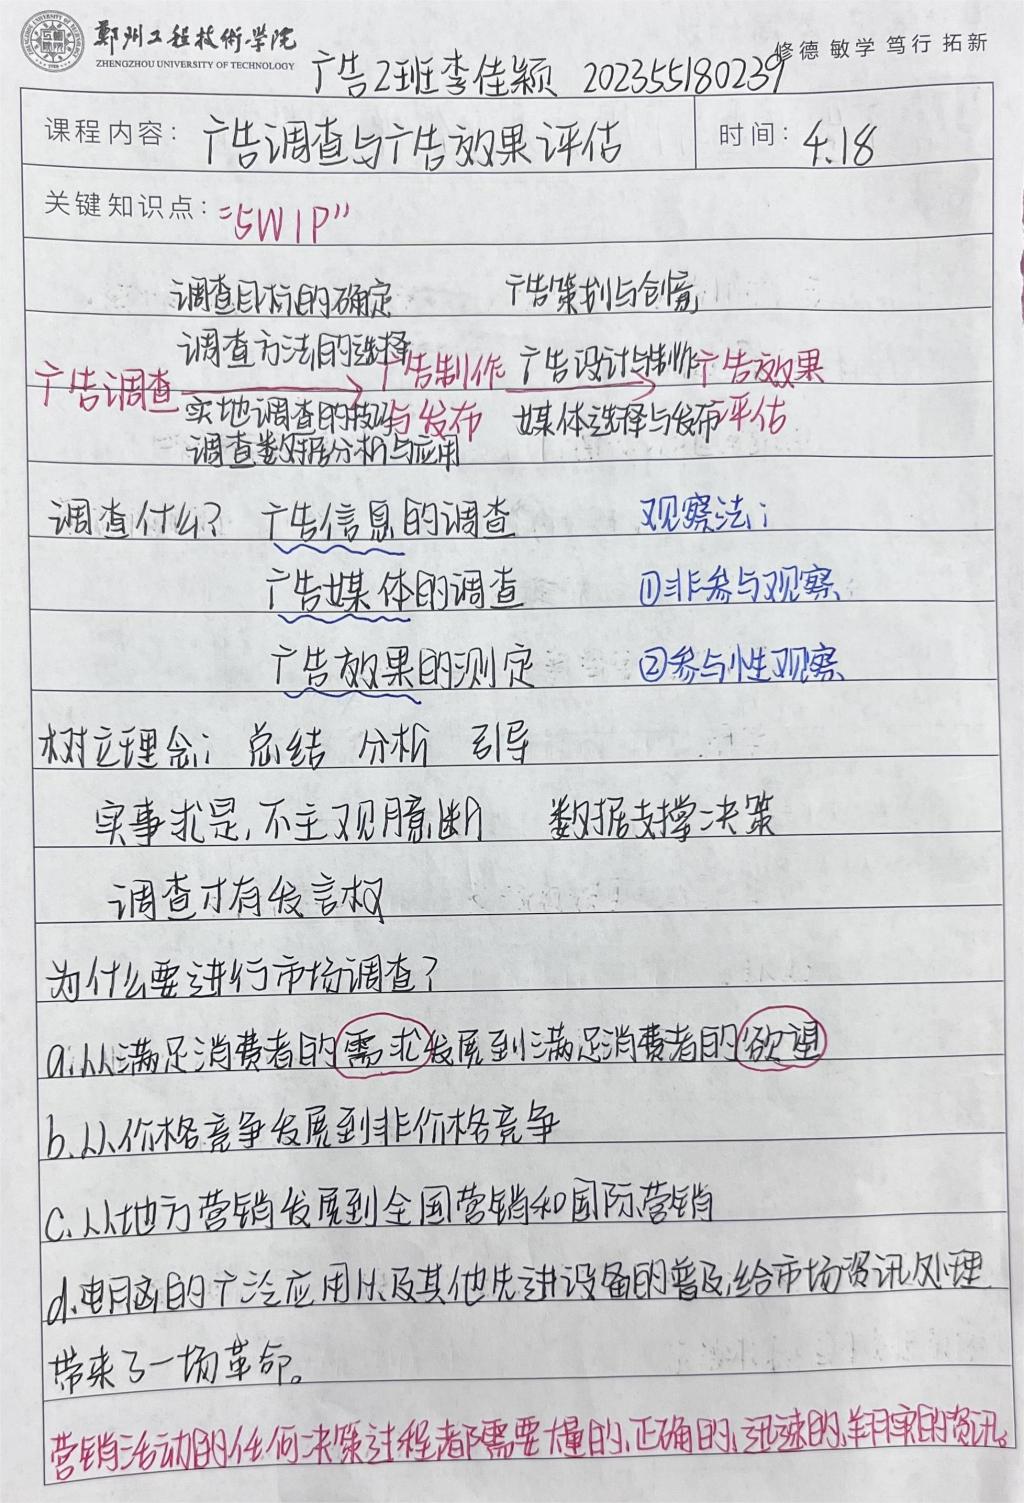 鄭州工程技術學院
ZHENGZHOU UNIVERSITY OF TECHNOLOGY
修德 敏学 笃行 拓新
广告2班李佳颖 202355180239
课程内容: 广告调查与广告效果评估 时间: 4.18
关键知识点: "5W1P"
调查目标的确定 广告策划与创意
调查方法的选择
广告调查 广告制作 广告设计与制作 广告效果
实地调查的技巧 与发布 媒体选择与发布 评估
调查数据分析与应用
调查什么? 广告信息的调查 观察法:
广告媒体的调查 ①非参与观察
广告效果的测定 ②参与性观察
树立理念: 总结 分析 引导
实事求是,不主观臆断 数据支撑决策
调查才有发言权
为什么要进行市场调查?
a.从满足消费者的需求发展到满足消费者的欲望
b.从价格竞争发展到非价格竞争
c.从地方营销发展到全国营销和国际营销
d.电脑的广泛应用以及其他先进设备的普及,给市场资讯处理
带来了一场革命。
营销活动的任何决策过程都需要大量的、正确的、迅速的、翔实的资讯。